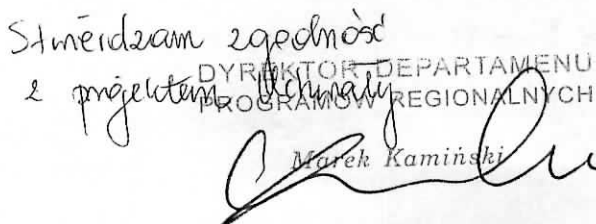 Stwierdzam zgodność
z projektem Uchwały
DYREKTOR DEPARTAMENU
PROGRAMÓW REGIONALNYCH
Marek Kamiński